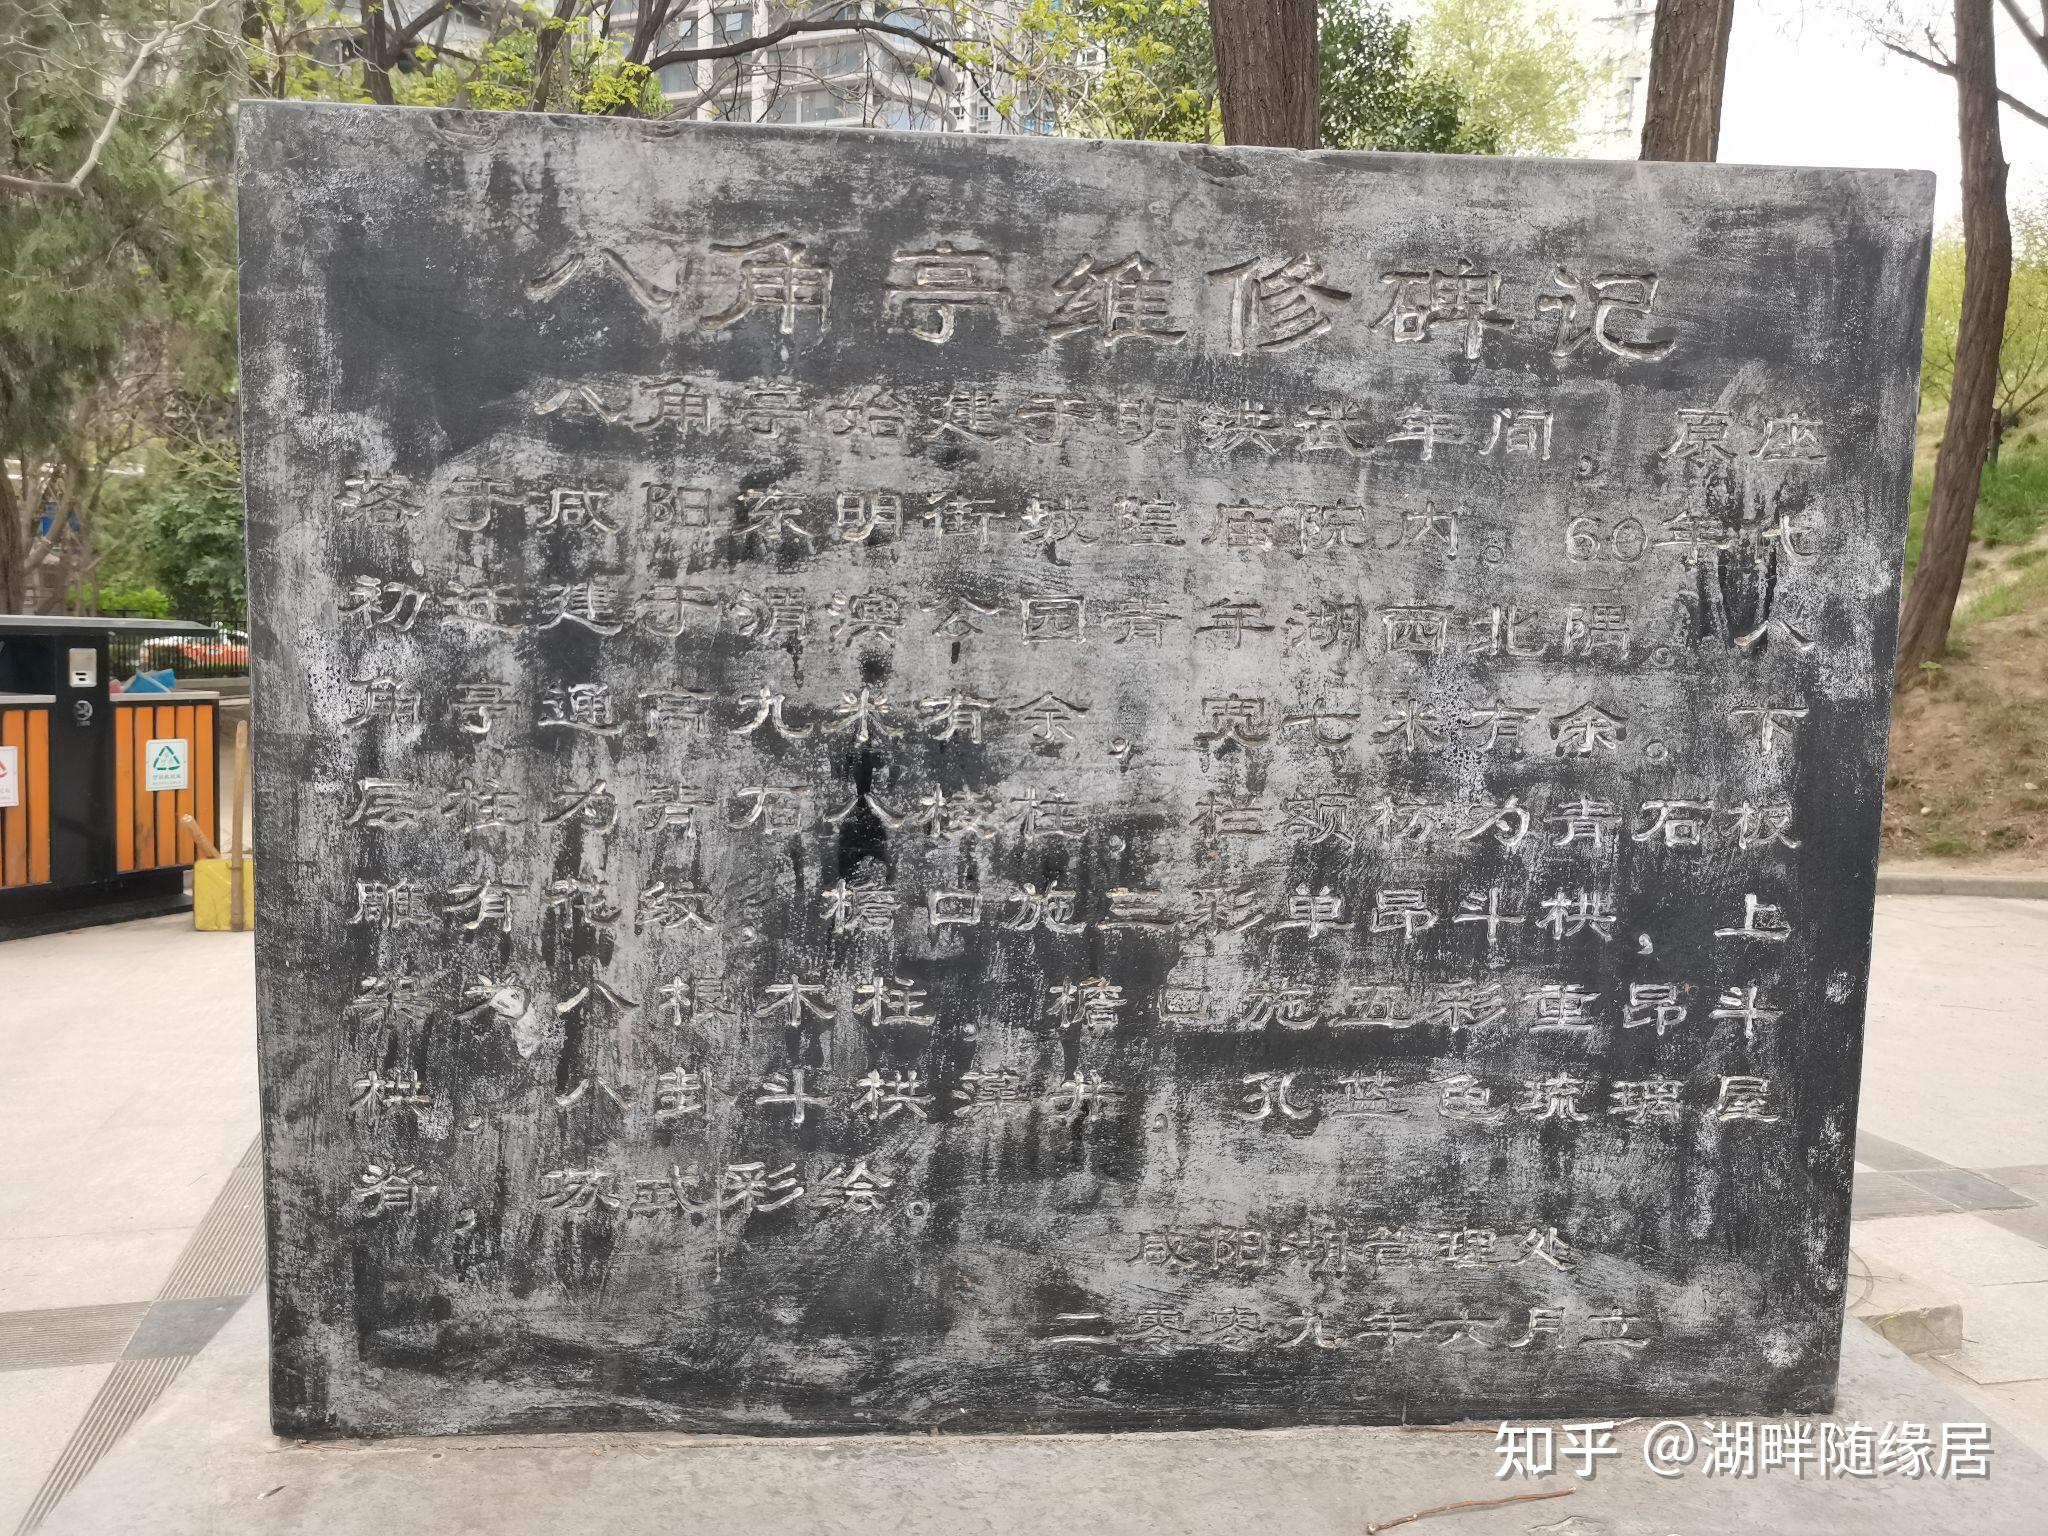 八角亭维修碑记
八角亭始建于明洪武年间，原座
落于咸阳东明街城隍庙院内。60年代
初迁建于渭滨公园青年湖西北隅。八
角亭通高九米有余，宽七米有余。下
层柱为青石八棱柱，栏额枋为青石板
雕有花纹，檐口施三彩单昂斗栱，上
架为八根木柱，檐口施五彩重昂斗
栱，八卦斗栱藻井，孔蓝色琉璃屋
脊，苏式彩绘。
咸阳湖管理处
二零零九年六月立
知乎 @湖畔随缘居